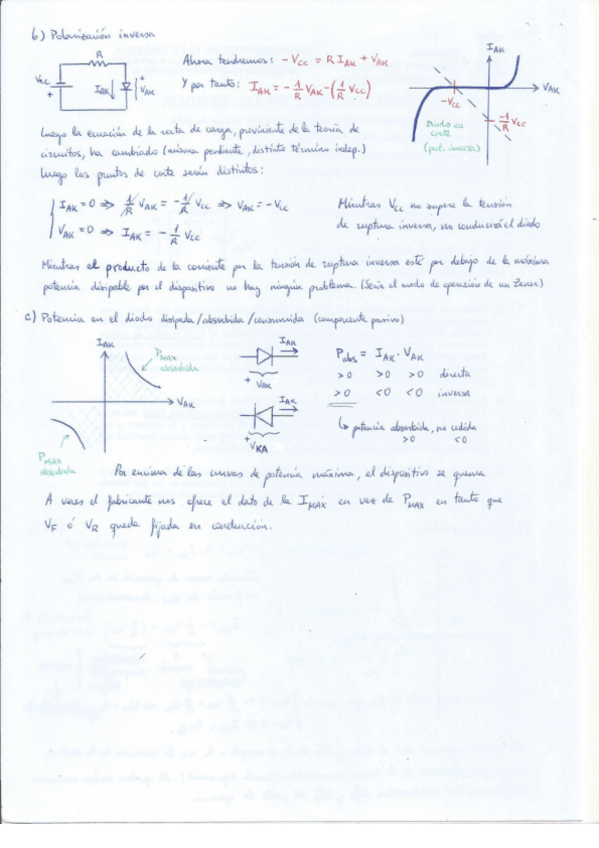 b) Polarización inversa
R
Vcc
+
IAK
+
VAK
Ahora tendremos: -Vcc = R IAK + VAK
Y por tanto: IAK = -1/R VAK - (1/R Vcc)
IAK
VAK
-Vcc
-1/R Vcc
Diodo en
corte
(pol. inversa)
Luego la ecuación de la recta de carga, proviniente de la teoría de
circuitos, ha cambiado (misma pendiente, distinto término indep.)
Luego los puntos de corte serán distintos:
IAK = 0 ⇒ 1/R VAK = -1/R Vcc ⇒ VAK = -Vcc
VAK = 0 ⇒ IAK = -1/R Vcc
Mientras Vcc no supere la tensión
de ruptura inversa, no conducirá el diodo
Mientras el producto de la corriente por la tensión de ruptura inversa esté por debajo de la máxima
potencia disipable por el dispositivo no hay ningún problema. (Sería el modo de operación de un Zener)
c) Potencia en el diodo disipada/absorbida/consumida (componente pasivo)
IAK
PMAX
absorbida
VAK
PMAX
absorbida
IAK
+ VAK
IAK
+ VKA
Pabs = IAK · VAK
>0 >0 >0 directa
>0 <0 <0 inversa
↳ potencia absorbida, no cedida
>0 <0
Por encima de las curvas de potencia máxima, el dispositivo se quema
A veces el fabricante nos ofrece el dato de la IMÁX en vez de PMAX en tanto que
VF ó VR queda fijada en conducción.